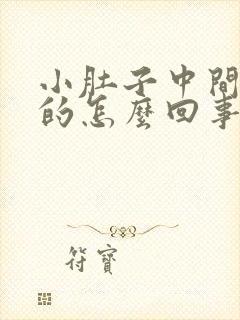 小肚子中間
的怎麼回事
符寶